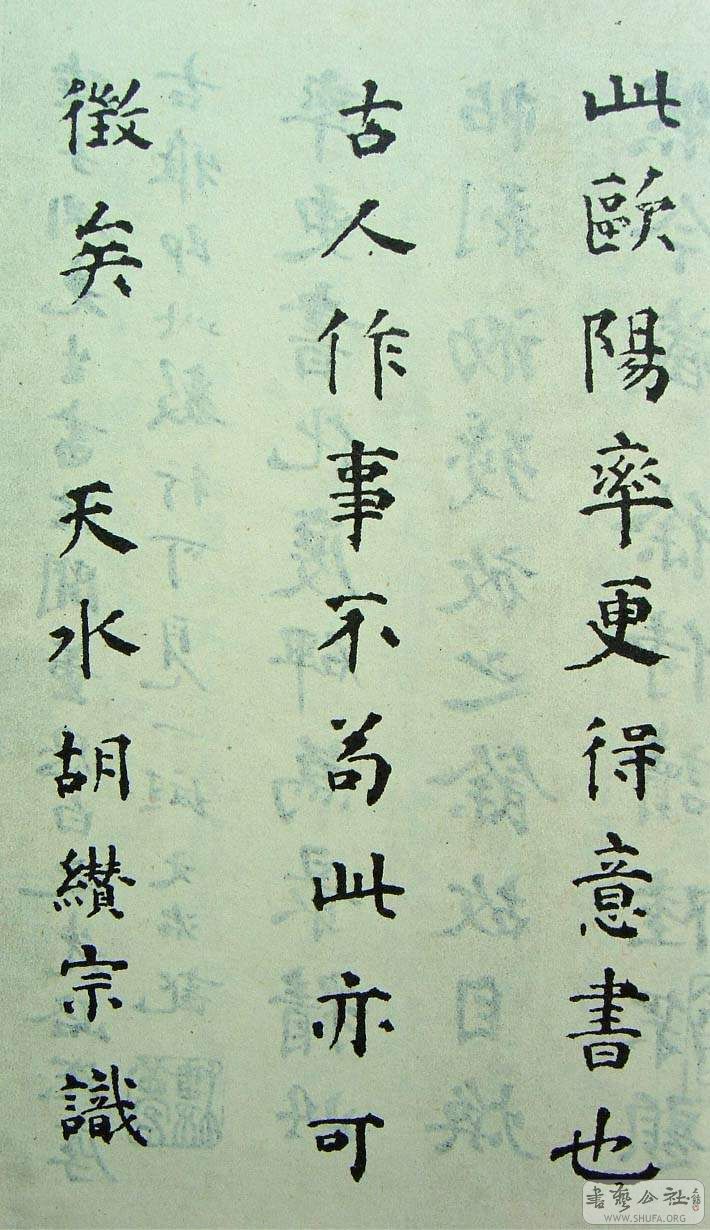 此歐陽率更得意書也
古人作事不苟此亦可
徵矣 天水胡纘宗識
書藝公社
WWW.SHUFA.ORG